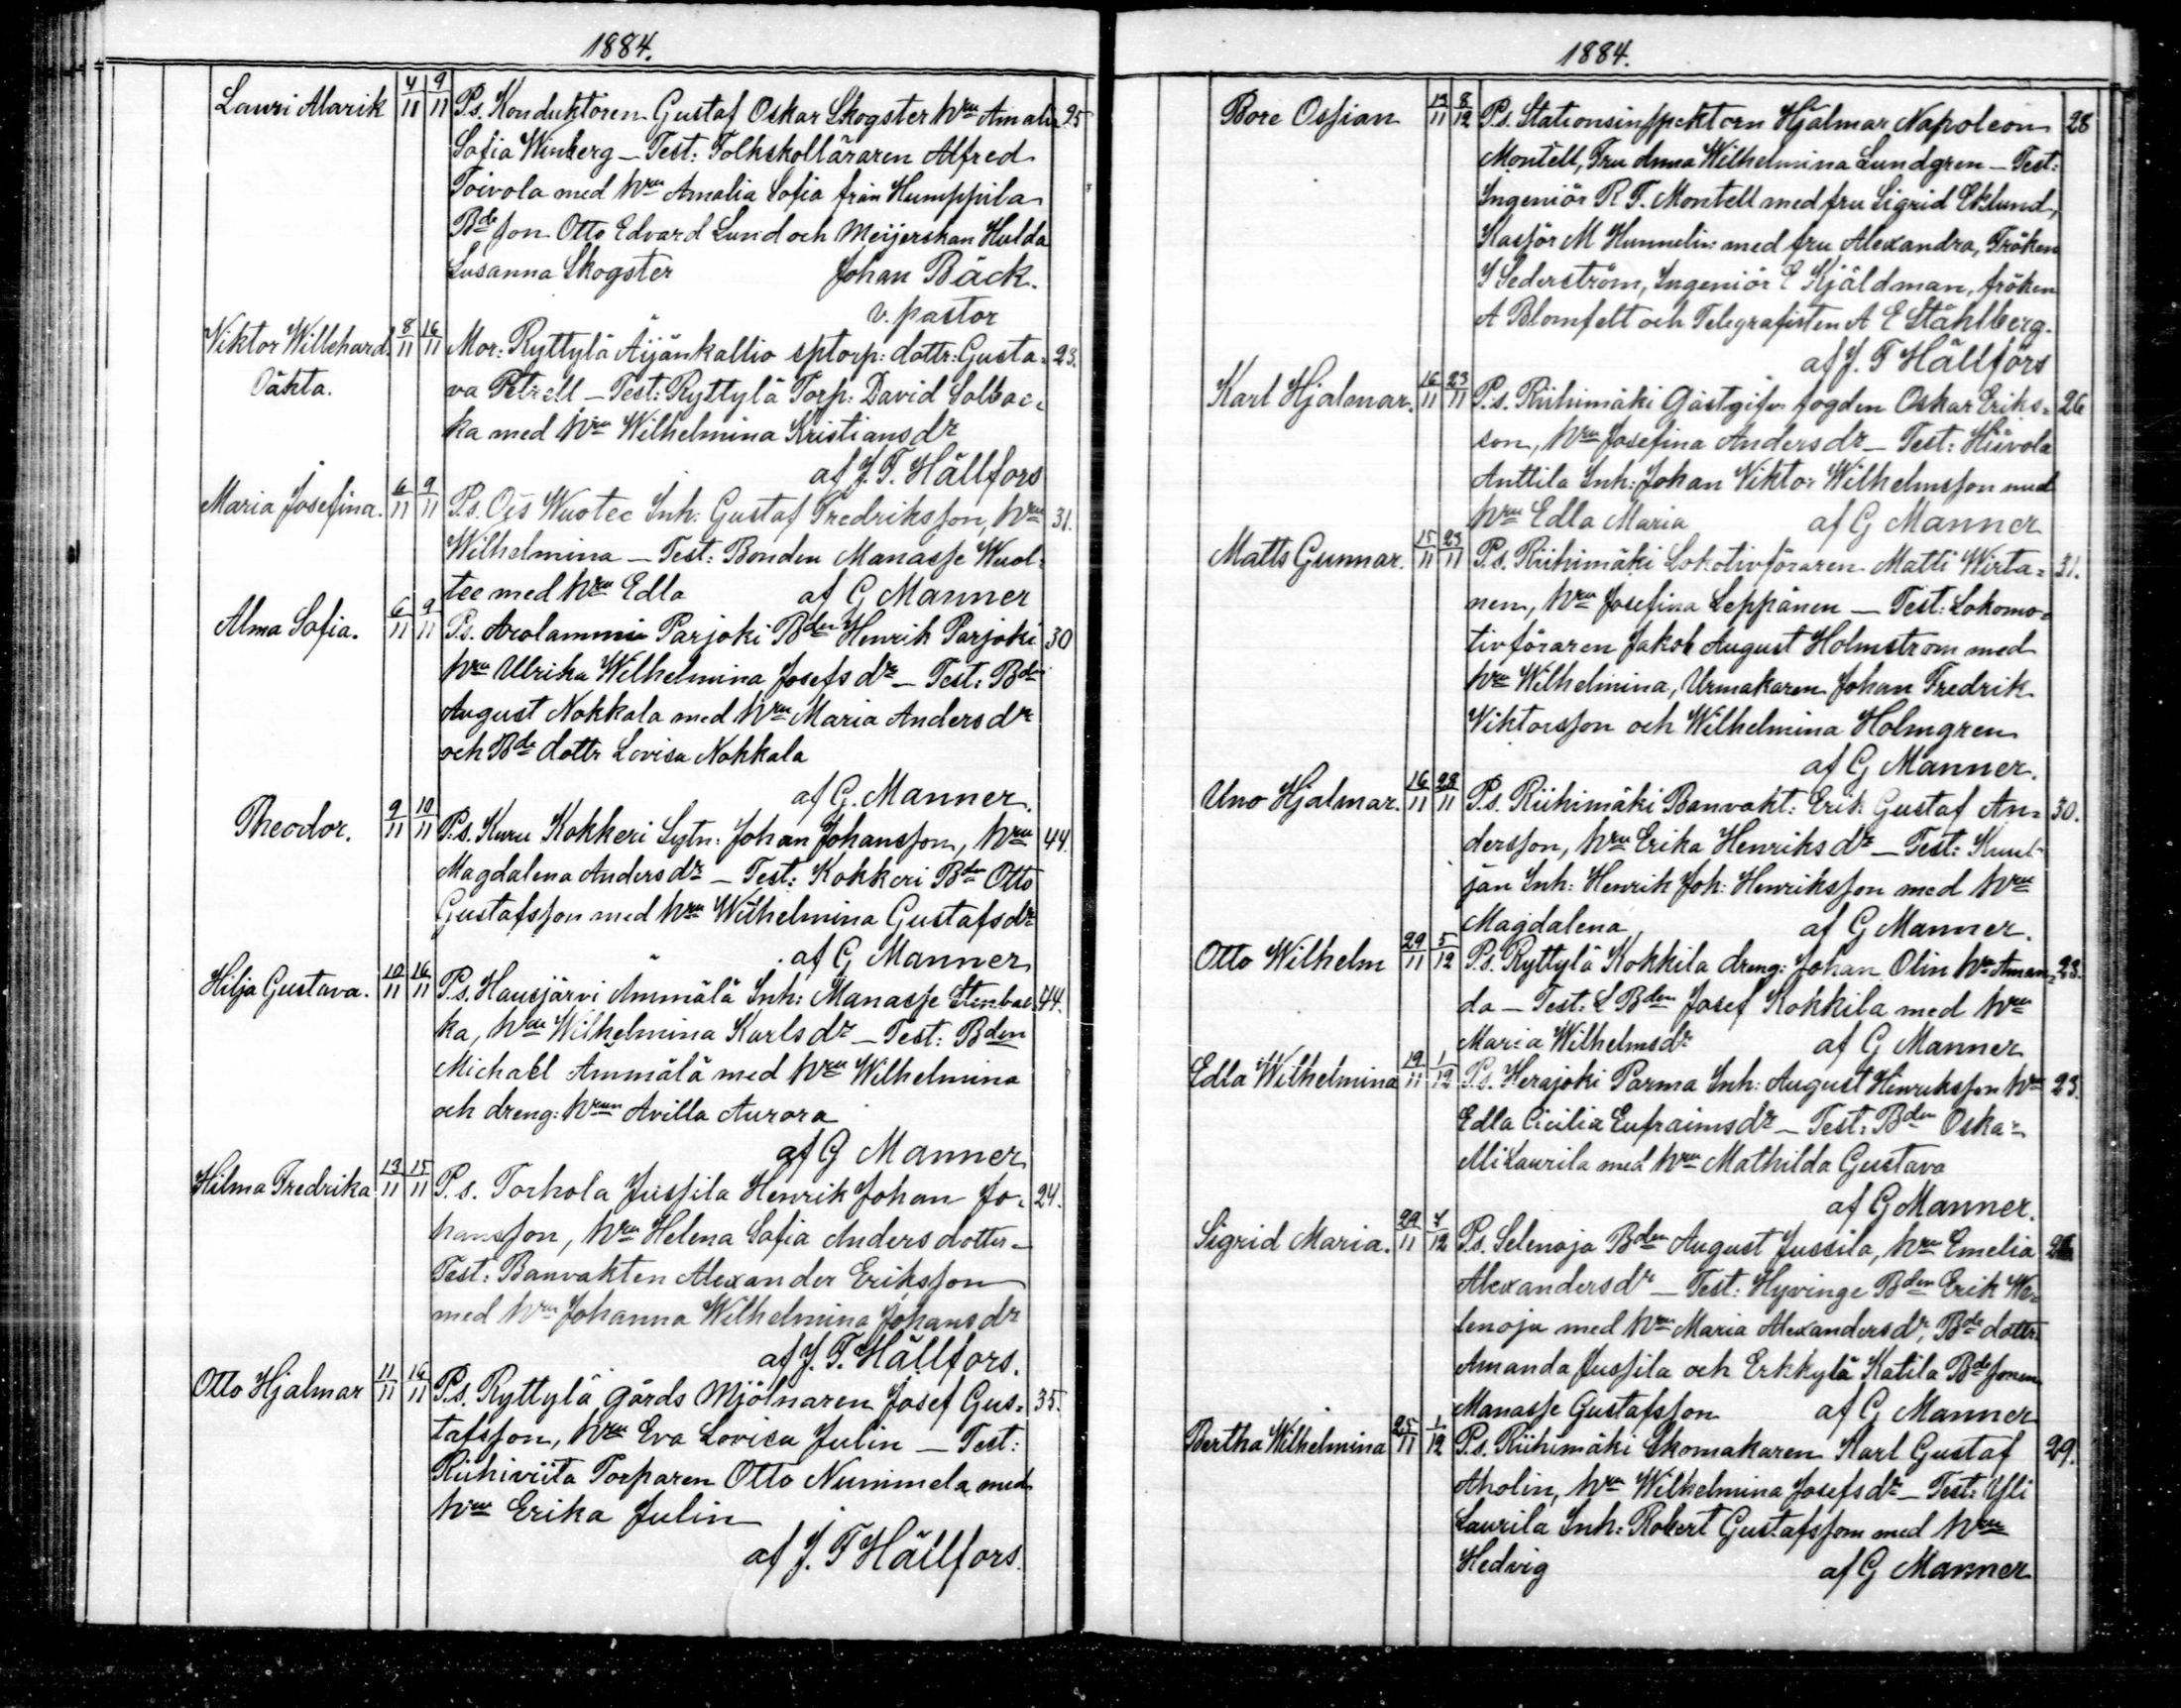 1884.
Lauri Alarik 4/11 9/11 P.s. Konduktören Gustaf Oskar Skogster hru Amalia 25
Sofia Winberg – Test: Folkskolläraren Alfred
Toivola med hru Amalia Sofia från Humppila
Bde son Otto Edvard Lund och Meijerskan Hulda
Susanna Skogster Johan Bäck.
v. pastor
Viktor Willehard 8/11 16/11 Mor: Ryttylä Äijänkallio sptorp: dottr: Gusta= 23.
Oäkta. va Petrell – Test: Ryttylä Torp: David Solbac=
ka med hru Wilhelmina Kristiansdr
af J. F. Hällfors
Maria Josefina. 6/11 9/11 P.s. Ojs Inh: Gustaf Fredriksson, hru 31.
Wilhelmina – Test: Bonden Manasse Wuol=
tee med hru Edla af G Manner
Alma Sofia. 6/11 9/11 P.s. Arolammi Parjoki Bden Henrik Parjoki 30
hru Ulrika Wilhelmina Josefsdr – Test: Bden
August Nokkala med hru Maria Andersdr
och Bde dottr Lovisa Nokkala
af G. Manner.
Theodor. 9/11 10/11 P.s. Kuru Kokkeri Sytn: Johan Johansson, hru 44.
Magdalena Andersdr – Test: Kokkeri Bden Otto
Gustafsson med hru Wilhelmina Gustafsdr
af G Manner
Hilja Gustava. 10/11 16/11 P.s. Hausjärvi Ammälä Inh: Manasse Stenbac= 44.
ka, hru Wilhelmina Karlsdr – Test: Bden
Michael Ammälä med hru Wilhelmina
och dreng: hrun Avilla Aurora
af G Manner
Hilma Fredrika 13/11 15/11 P.s. Torhola Jussila Henrik Johan Jo= 24.
hansson, hru Helena Sofia Andersdotter –
Test: Banvakten Alexander Eriksson
med hru Johanna Wilhelmina Johansdr
af J. F. Hällfors.
Otto Hjalmar 11/11 16/11 P.s. Ryttylä gårds Mjölnaren Josef Gus= 35.
tafsson, hru Eva Lovisa Julin – Test:
Riihiviita Torparen Otto Nummela med
hru Erika Julin
af J. F Hällfors.
1884.
Bore Ossian 8/12 P.s. Stationsinspektorn Hjalmar Napoleon 28
Montell, Fru Anna Wilhelmina Lundgren – Test:
Ingeniör R F. Montell med fru Sigrid Eklund,
Kassör M Hunnelin med fru Alexandra, Fröken
S Sederström, Ingeniör E Kjäldman, fröken
A Blomfelt och Telegrafisten A E Ståhlberg.
af J. F Hällfors
Karl Hjalmar. 16/11 23/11 P.s. Riihimäki Gästgifv. fogden Oskar Eriks= 26
son, hru Josefina Andersdr – Test: Hiivola
Anttila Inh: Johan Viktor Wilhelmsson med
hru Edla Maria af G Manner
Matts Gunnar. 15/11 23/11 P.s. Riihimäki Lokotivföraren Matti Wirta= 31.
nen, hru Josefina Leppänen – Test: Lokomo=
tivföraren Jakob August Holmström med
hru Wilhelmina, Urmakaren Johan Fredrik
Viktorsson och Wilhelmina Holmgren
af G Manner.
Uno Hjalmar. 16/11 23/11 P.s. Riihimäki Banvakt: Erik Gustaf An= 30.
dersson, hru Erika Henriksdr – Test:
jän Inh: Henrik Joh: Henriksson med hru
Magdalena, af G Manner.
Otto Wilhelm 29/11 5/12 P.s. Ryttylä Kokkila dreng: Johan Olin hru Aman= 23.
da – Test: L Bden Josef Kokkila med hru
Maria Wilhelmsdr af G Manner
Edla Wilhelmina 19/11 1/12 P.s. Herajoki Parma Inh: August Henriksson hru 23.
Edla Cicilia Eufraimsdr – Test: Bden Oska=
Ali Laurila med hru Mathilda Gustava
af G Manner.
Sigrid Maria. 29/11 P.s. Selenoja Bden August Jussila, hru Emelia
Alexandersdr – Test: Hyvinge Bden Erik We=
lenoja med hru Maria Alexandersdr, Bde dottr:
Amanda Jussila och Erkkylä Katila Bde sonen
Manasse Gustafsson af G Manner
Bertha Wilhelmina 25/11 1/12 P.s. Riihimäki Skomakaren Karl Gustaf 29.
Aholin, hru Wilhelmina Josefsdr – Test: Yli
Laurila Inh: Robert Gustafsson med hru
Hedvig af G Manner